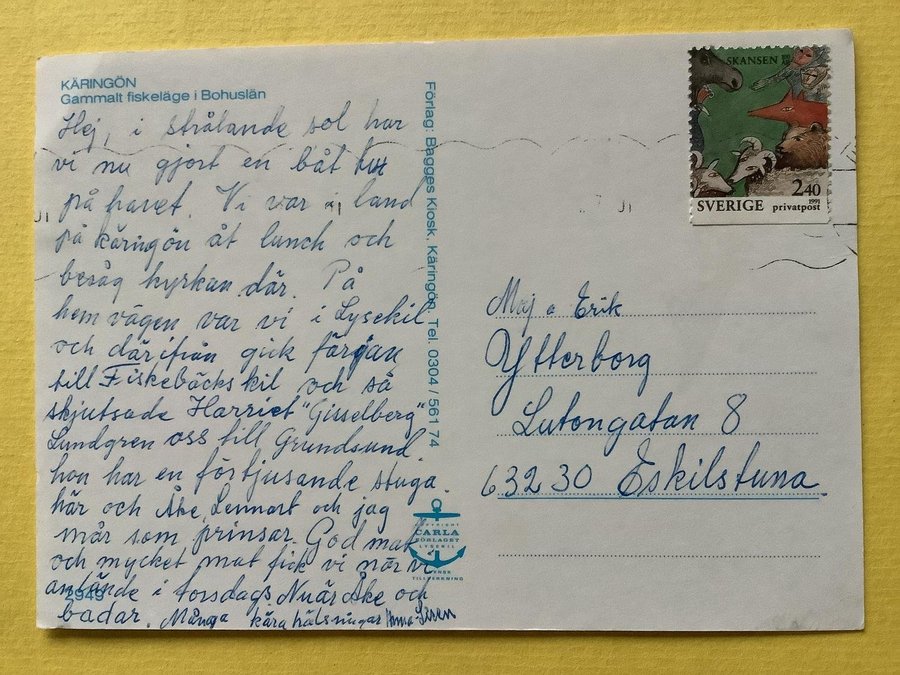 KÄRINGÖN
Gammalt fiskeläge i Bohuslän
Hej, i strålande sol har
vi nu gjort en båt tur
på havet. Vi var i land
på käringön åt lunch och
besåg kyrkan där. På
hemvägen var vi i Lysekil
och därifrån gick färjan
till Fiskebäckskil och så
skjutsade Harriet "Gisselberg"
Lundgren oss till Grundsund
hon har en förtjusande stuga
här och Åke, Lennart och jag
mår som prinsar. God mat
och mycket mat fick vi när vi
anlände i torsdags Nu är Åke och
badar. Många kära hälsningar Anna-Siren
2949
Förlag: Bagges Kiosk, Käringön, Tel. 0304 / 561 74
COPYRIGHT
CARLA
FÖRLAGET
LYSEKIL
SVENSK
TILLVERKNING
SKANSEN
2.40
1991
SVERIGE privatpost
Maj o Erik
Ytterborg
Lutongatan 8
632 30 Eskilstuna